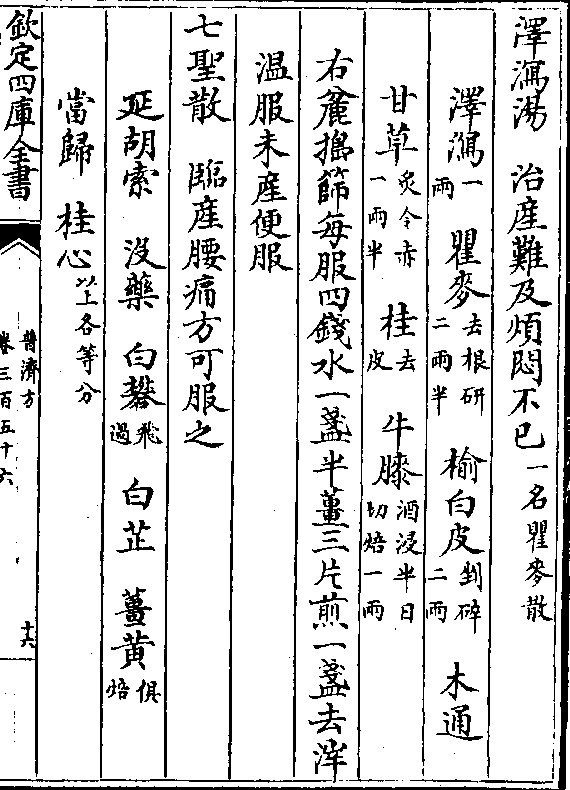 澤瀉湯　治産難及煩悶不已一名瞿麥散
澤瀉一兩　瞿麥去根研二兩半　榆白皮剉碎二兩　木通
甘草炙令赤一兩半　桂去皮　牛膝酒浸半日切焙一兩
右麄擣篩每服四錢水一盞半薑三片煎一盞去滓
温服未産便服
七聖散　臨産腰痛方可服之
延胡索　没藥　白礬飛過　白芷　薑黄俱焙
當歸　桂心以上各等分
欽定四庫全書
普濟方
卷三百五十六
十六